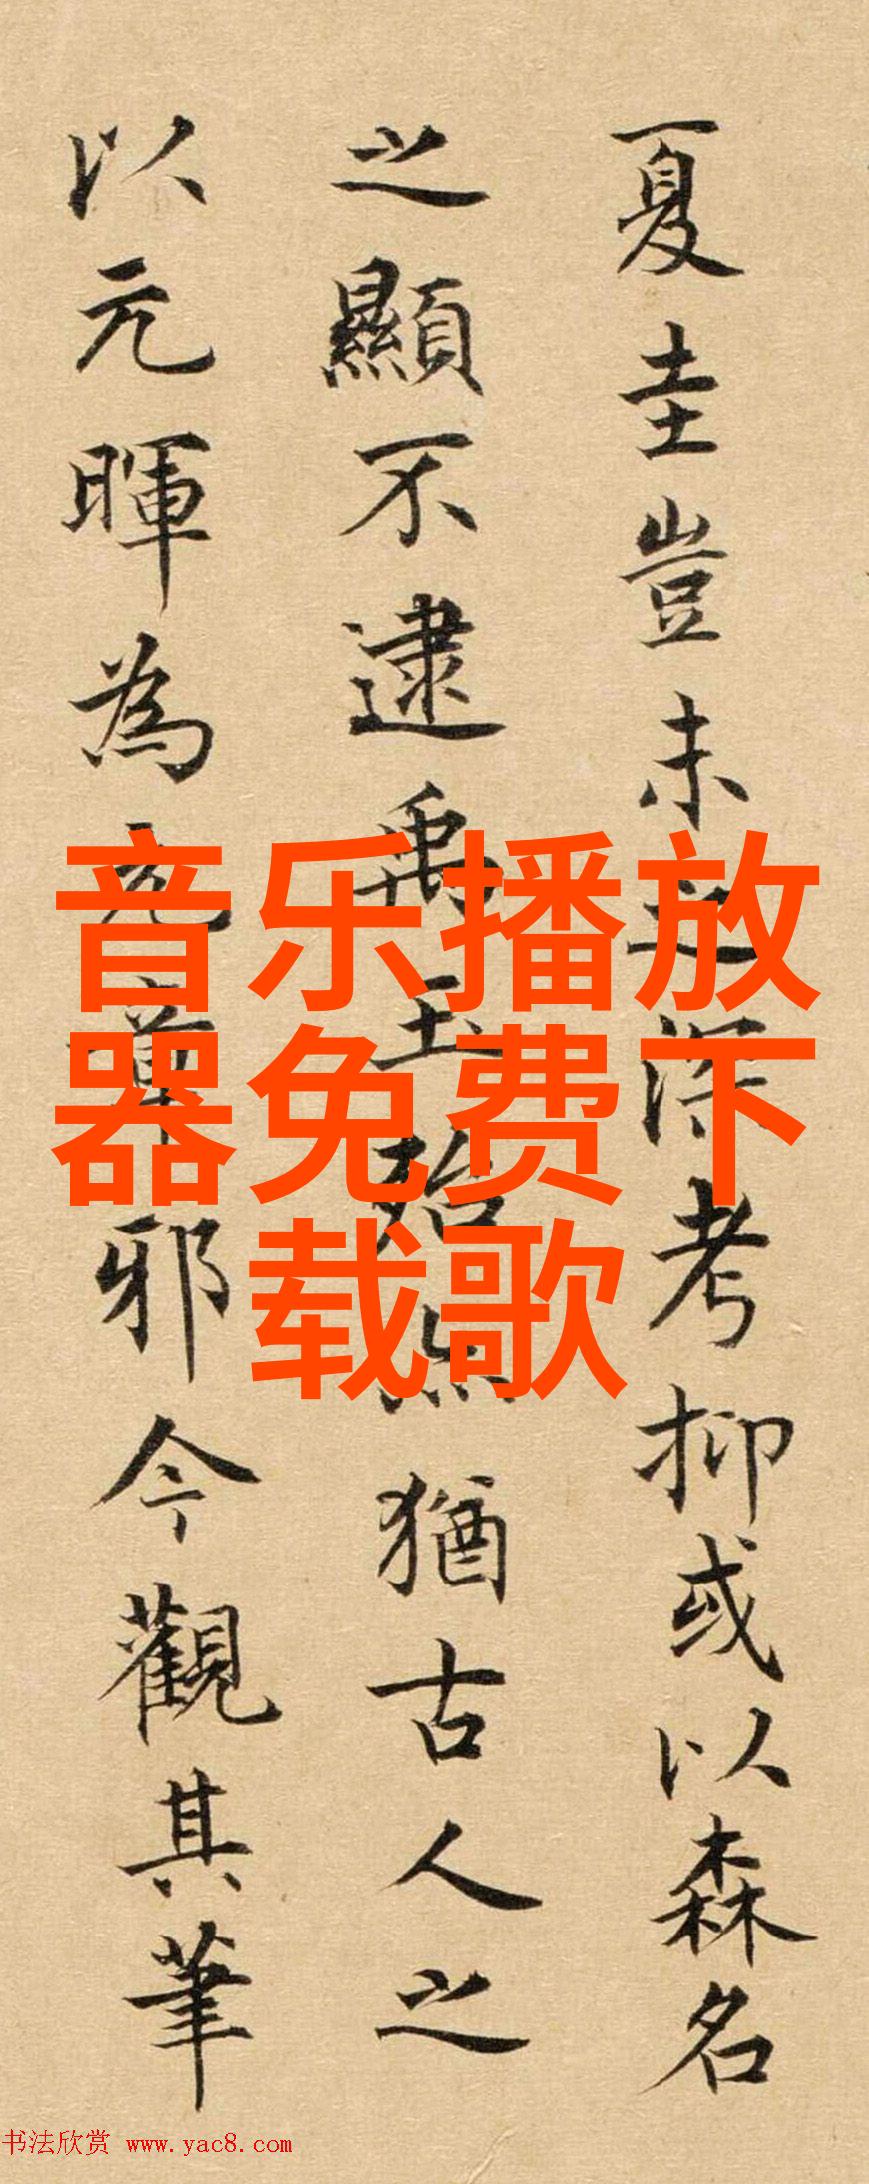 夏圭豈未之深考抑或以森名
之顯不逮禹玉殆猶古人之
以元暉為元章邪今觀其筆
音乐播放
器免费下
载歌
书法欣赏 www.yac8.com